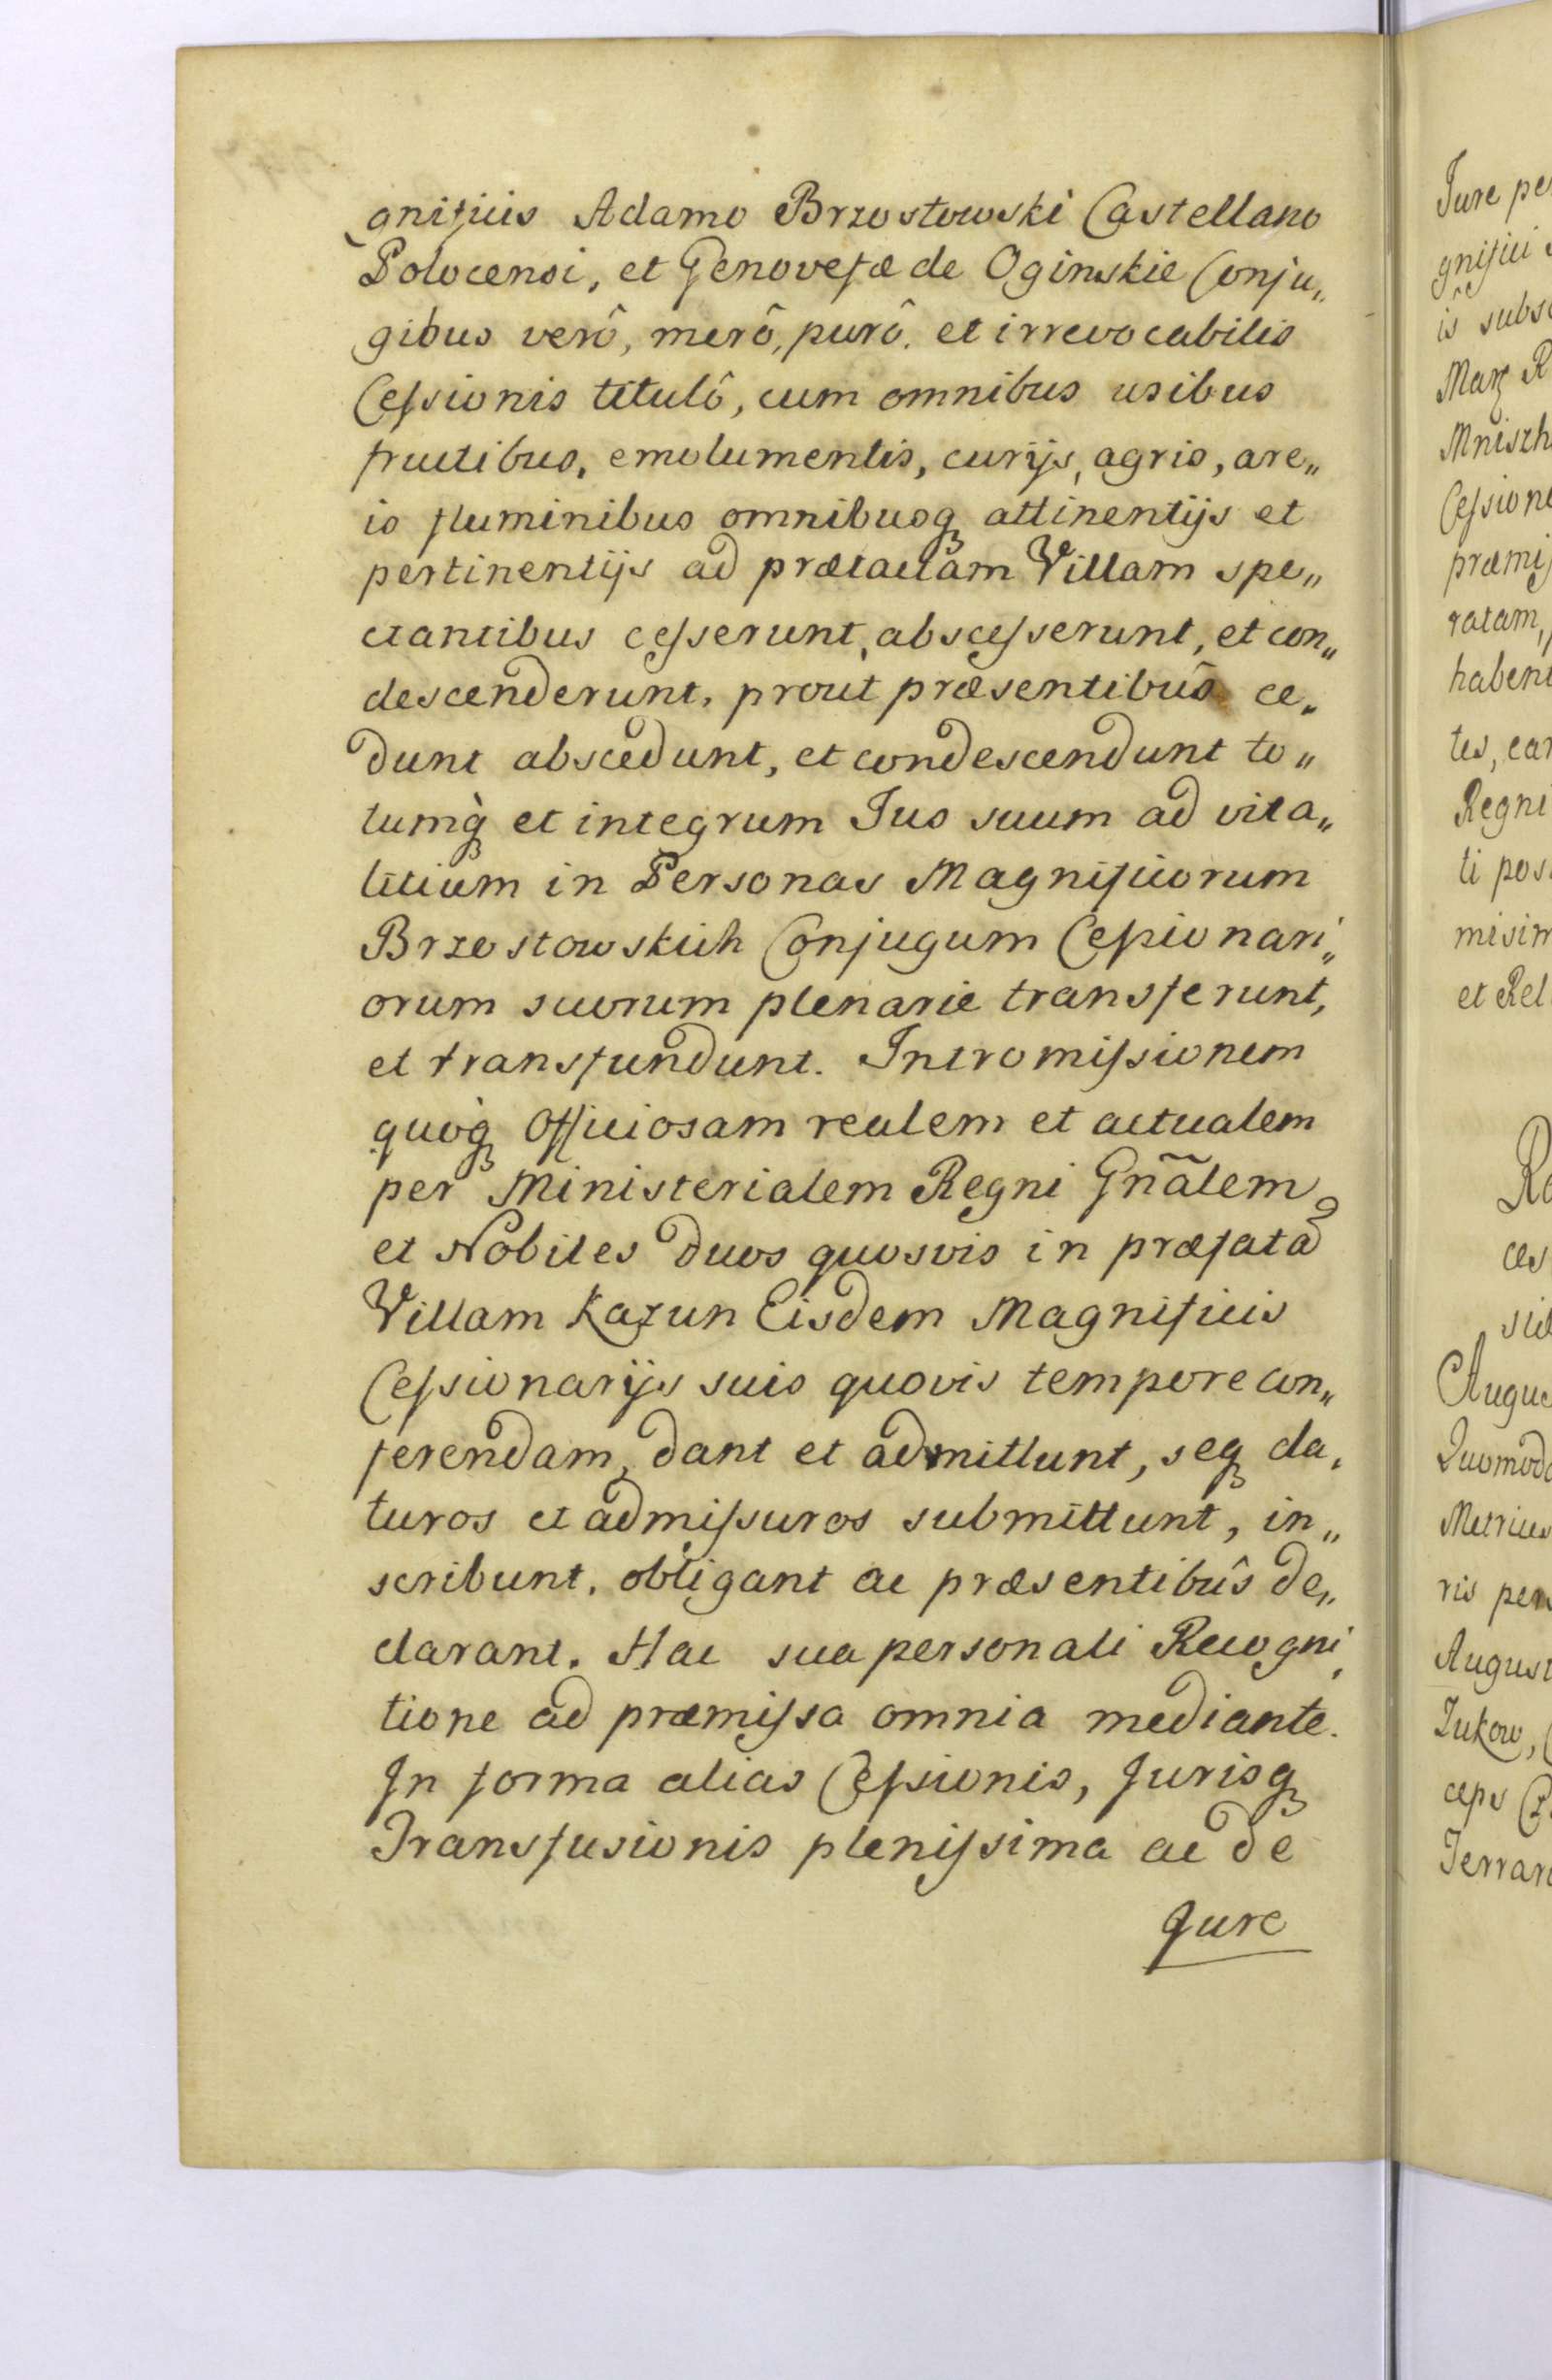 gnificis Adamo Brzostowski Castellano
Polocensi, et Genovefæ de Oginskie Conju„
gibus verô, merô, purô, et irrevocabilis
Cessionis titulô, cum omnibus usibus
fructibus, emolumentis, curijs, agris, are„
is fluminibus omnibusq attinentijs et
pertinentijs ad prætactam Villam spe„
ctantibus cesserunt, abscesserunt, et con„
descenderunt, prout præsentibûs ce„
dunt abscedunt, et condescendunt to„
tumq̀ et integrum Jus suum ad vita„
litium in Personas Magnificorum
Brzostowskich Conjugum Cessionari„
orum suorum plenarie transferunt,
et transfundunt. Intromissionem
quoq̀ Officiosam realem et actualem
per Ministerialem Regni Gñalem
et Nobiles duos quosvis in præfatã
Villam Kazun Eisdem Magnificis
Cessionarijs suis quovis tempore con„
ferendam, dant et admittunt, seq da„
turos et admissuros submittunt, in„
scribunt, obligant ac præsentibûs de„
clarant. Hac sua personali Recogni„
tione ad præmissa omnia mediante.
In forma alias Cessionis, Jurisq
Transfusionis plenissima ac de
Jure
Jure pe
gnifici
is subs
Marz R
Mniszh
Cession
præmis
ratam,
habent
tes, ea
Regni
ti pos
misim
et Rel
R
ces
sil
Augus
Quomodo
Metrices
ris per
August
Zukow,
ceps
Terrar